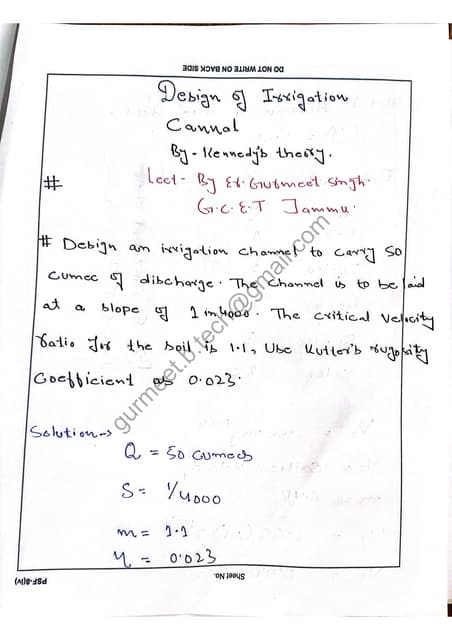 DO NOT WRITE ON BACK SIDE
Design of Irrigation
Cannal
By - Kennedy's theory.
# Lect - By Er. Gurmeet Singh.
G.C.E.T Jammu.
# Design an irrigation channel to carry 50
cumec of discharge. The channel is to be laid
at a slope of 1 in 4000. The critical velocity
ratio for the soil is 1.1, Use Kutter's rugosity
Coefficient as 0.023.
gurmeet.b.tech@gmail.com
Solution ->
Q = 50 cumecs
S = 1/4000
m = 1.1
η = 0.023
Sheet No.
PSF-8(IV)